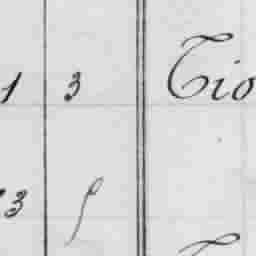 1 3 Tio
3 f